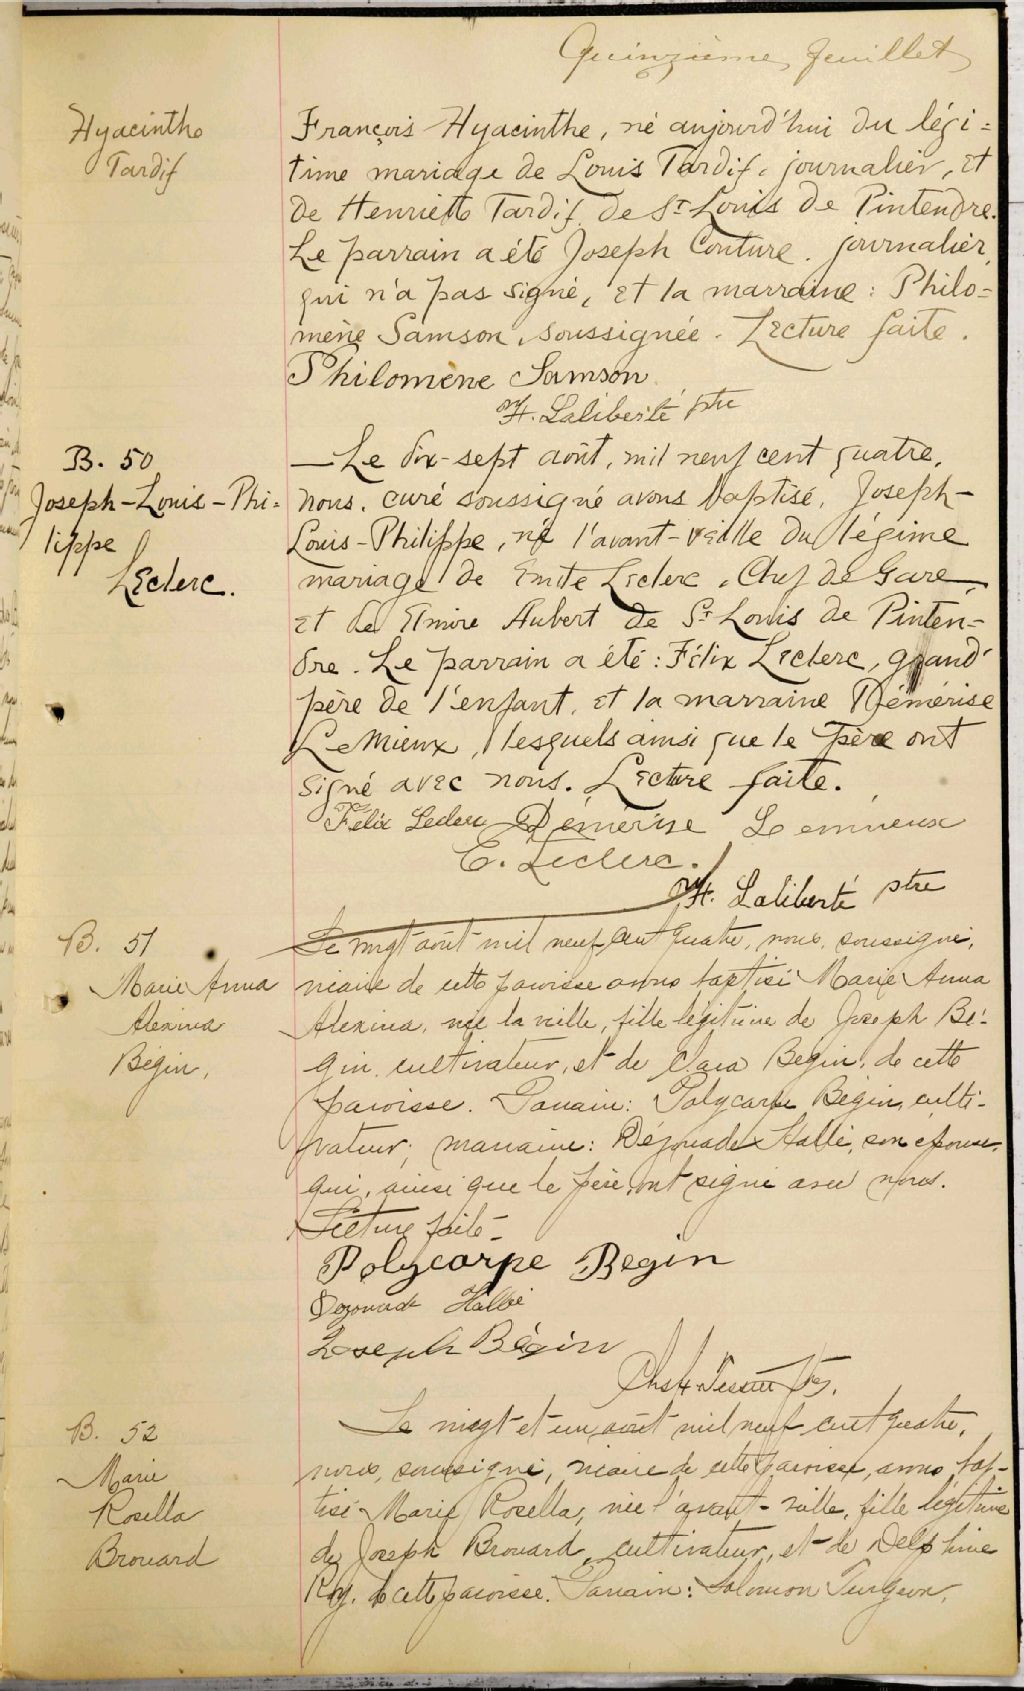 Quinzième feuillet
Hyacinthe
Tardif
François Hyacinthe, né aujourd'hui du légi=
time mariage de Louis Tardif, journalier, et
de Henriette Tardif de St Louis de Pintendre.
Le parrain a été Joseph Couture, journalier,
qui n'a pas signé, et la marraine: Philo=
mène Samson, soussignée. Lecture faite.
Philomène Samson
H. Laliberté ptre
B. 50
Joseph-Louis-Phi=
lippe
Leclerc.
—Le dix-sept août, mil neuf cent quatre,
nous, curé soussigné avons baptisé, Joseph-
Louis-Philippe, né l'avant-veille du légime
mariage de Emile Leclerc, Chef de Gare,
et de Elmire Aubert de St Louis de Pinten-
dre. Le parrain a été: Félix Leclerc, grand
père de l'enfant, et la marraine Démérise
LeMieux, lesquels ainsi que le Père ont
signé avec nous. Lecture faite.
Félix Leclerc Démérise Lemieux
E. Leclerc.
H. Laliberté ptre
B. 51
Marie Anna
Alexina
Bégin,
Le vingt août mil neuf cent quatre, nous, soussigné,
vicaire de cette paroisse avons baptisé Marie Anna
Alexina, née la veille, fille légitime de Joseph Bé-
gin, cultivateur, et de Clara Bégin, de cette
paroisse. Parrain: Polycarpe Bégin, culti-
vateur; marraine: Dézouade Hallé, son épouse,
qui, ainsi que le père, ont signé avec nous.
Lecture faite-
Polycarpe Begin
Dezouade Hallé
Joseph Bégin
B. 52
Marie
Rosella
Brouard
Le vingt-et-un août mil neuf cent quatre,
nous, soussigné, vicaire de cette paroisse, avons bap-
tisé Marie Rosella, née l'avant-veille, fille légitime
de Joseph Brouard, cultivateur, et de Delphine
Roy, de cette paroisse. Parrain: Salomon Turgeon,